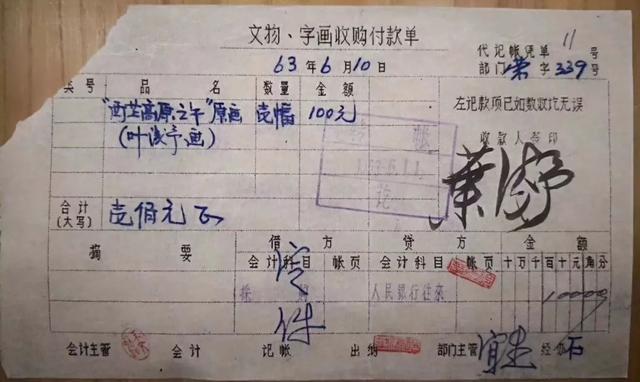 文物、字画收购付款单
代记帐凭单 11 号
63年6月10日
部门 荣 字 339 号
类号 品名 数量 金额
左记款项已如数收讫无误
"西芷高原之午"原画 壱幅 100元
(叶浅予画)
收款人签印
叶浅予
合计
(大写) 壱佰元正
摘要 借方 贷方 金额
会计科目 帐页 会计科目 帐页 十万千百十元角分
人民银行往来 10000
会计主管 会计 记帐 出纳 部门主管 经办 石